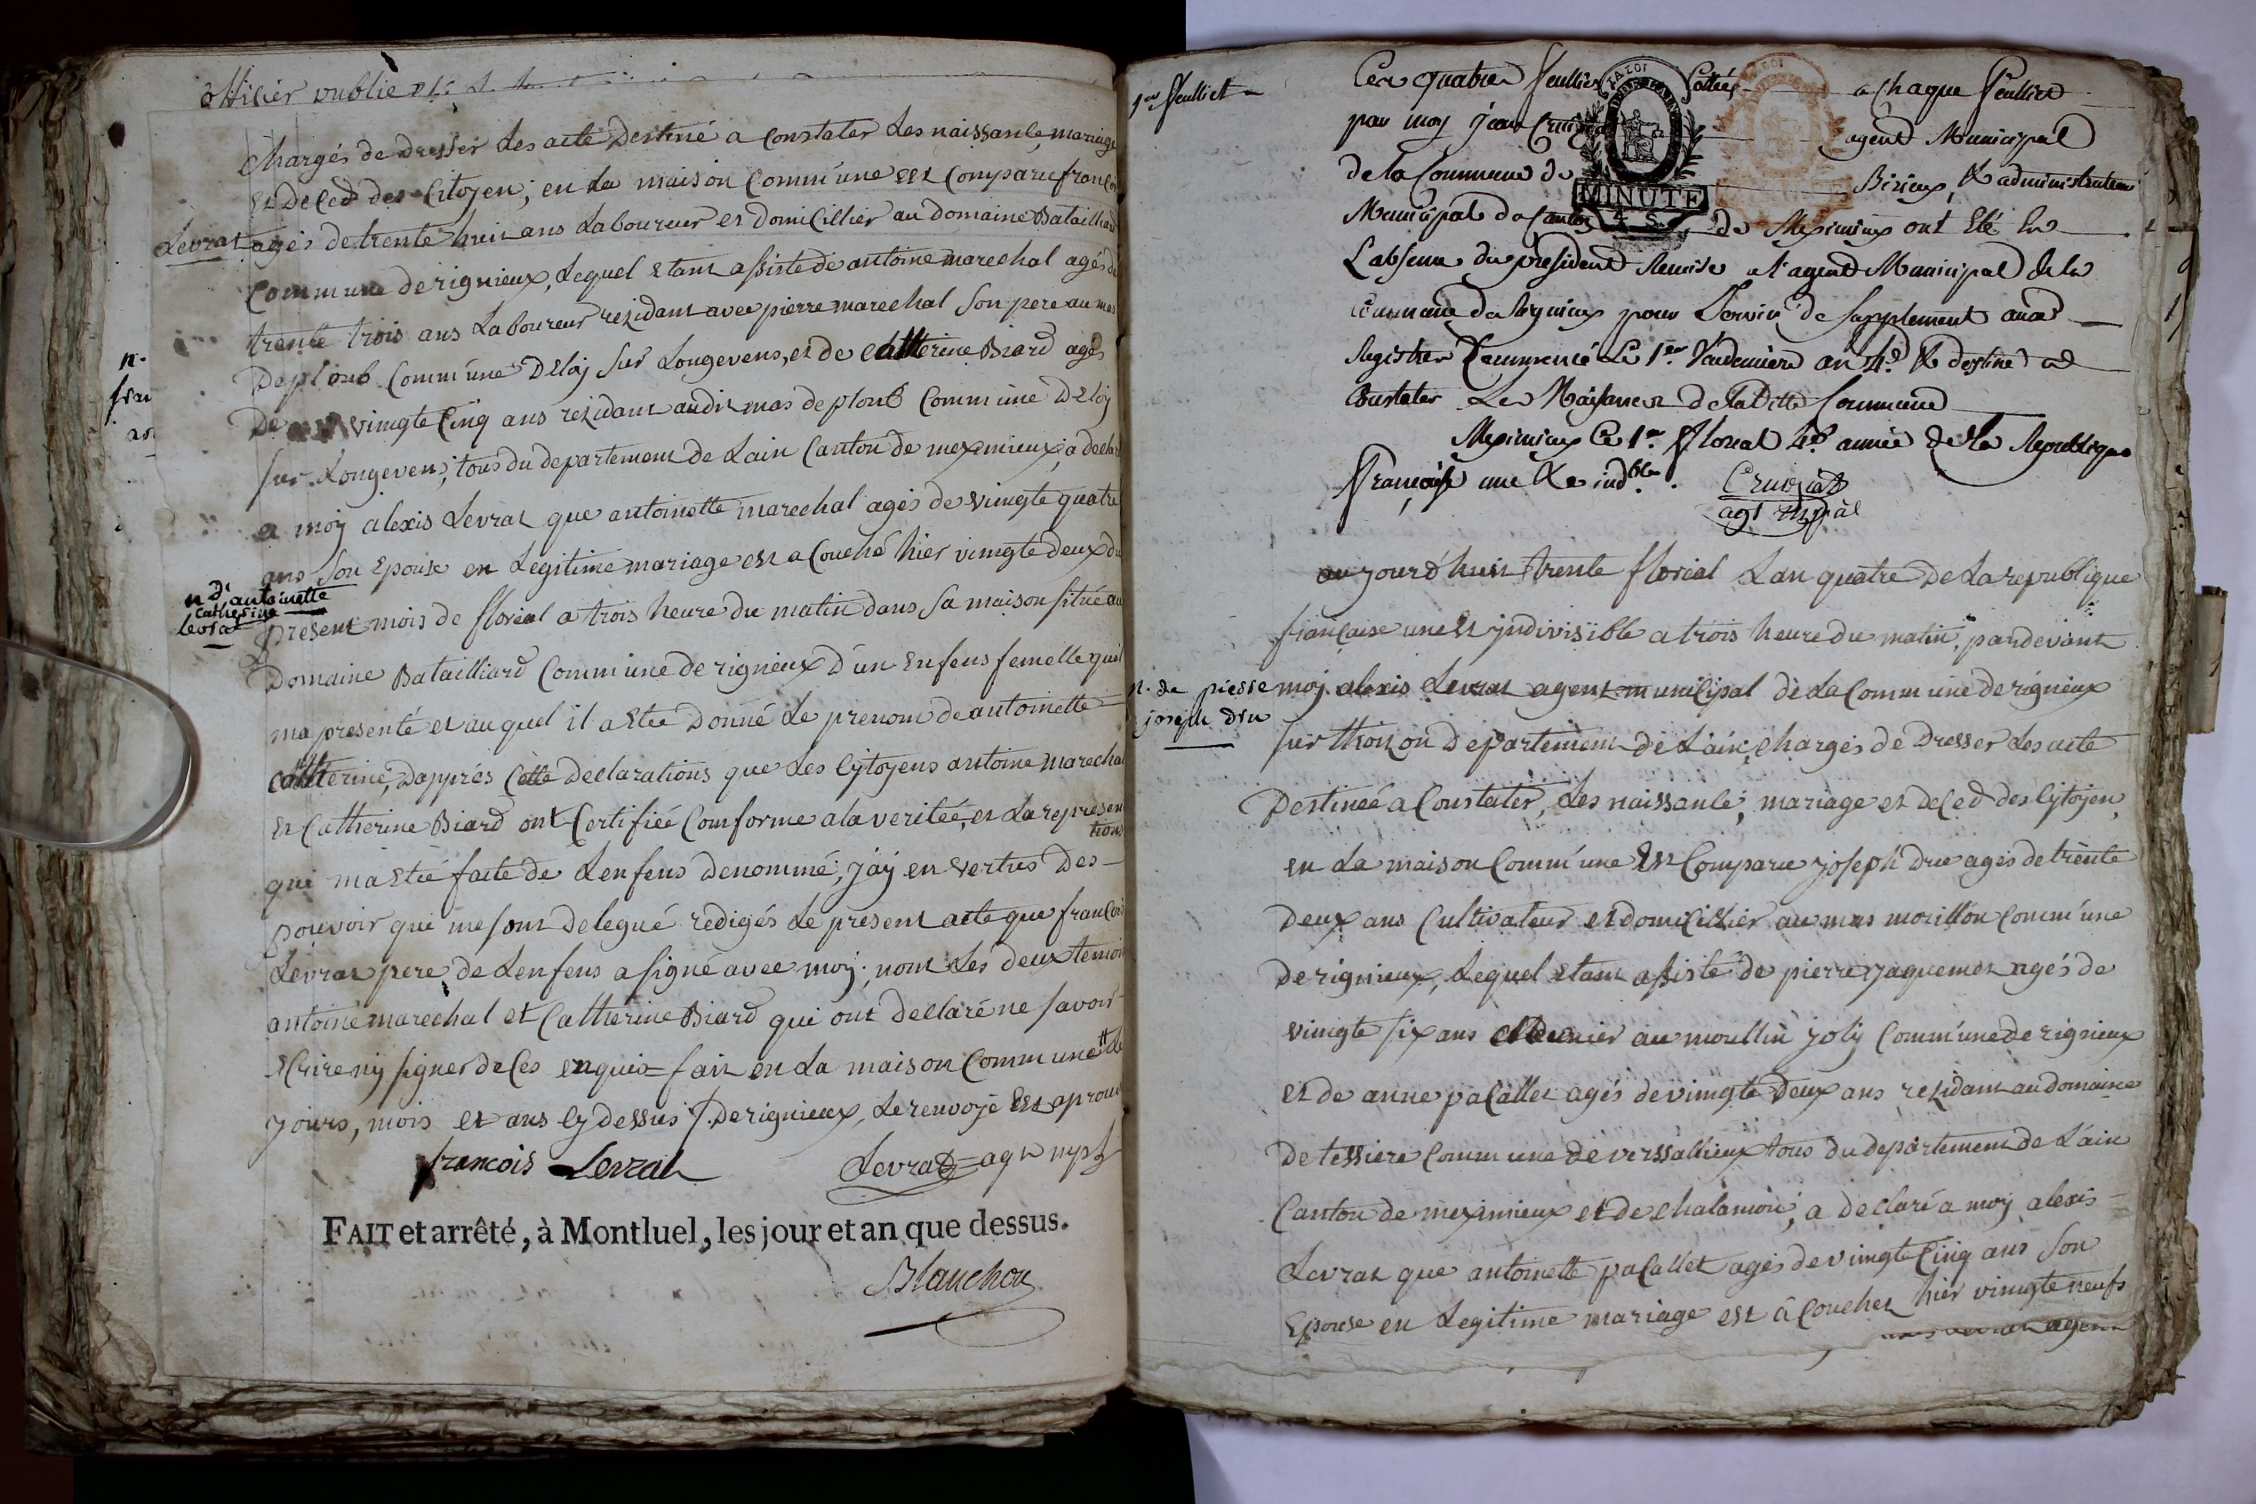 officier public
chargés de dresser Les acte Destiné a Constater Les naissance, mariage
et deced des Citoyen; en La maison Comm'une est Comparu françois
Levrat agés de trente huit ans Laboureur et domicillier au domaine Batailliard
Commune de rignieux, Lequel Etant assisté de antoine marechal agés de
trente trois ans Laboureur rezidant avec pierre marechal Son pere au mas
Deplonb Comm'une Deloy Sur Longevens, et de Catherine Biard agés
De vingte Cinq ans rezidant audit mas de plonb Comm'une Deloy
sur Longevens; tous du departement de Lain Canton de meximieux, a declaré
a moy alexis Levrat que antoinette marechal agés de vingte quatre
ans Son Epouse en Legitime mariage est a Couché hier vingte deux du
n d' antoinette
Catherine
Levrat
present mois de floréal a trois heure du matin dans Sa maison Situé au
Domaine Batailliard Comm'une de rignieux D'un Enfens femelle quil
ma presenté et auquel il a Etée Donné Le prenom de antoinette
Catherine, Dapprés Cette declarations que Les Cytoyens antoine marechal
Et Catherine Biard ont Certifiée Comforme a la veritée, et La represen
tions
qui ma Etée faite de Lenfens denommé; j'ay en vertus Des
pouvoir qui me sont delegué redigés Le present acte que françois
Levrat pere de Lenfens a signé avec moy; nont Les deux temoin
antoine marechal et Catherine Biard qui ont declaré ne savoir
Ecrire ny signer de Ces enquis = fait en La maison Commune # Les
jours, mois et ans Cy dessus #. De rignieux, Le renvoyé Est aprouvé
francois Levrat
Levrat = agt mpl
FAIT et arrêté, à Montluel, les jour et an que dessus.
Blanchon
n.
fran
an
1er feulliet
Ces quatre feulliet Cottés a chaque feulliet
par moy jean Cruiziat agent Municipal
de la Commune de Birieux, & administrateur
MINUTE
4. S.
Municipal du Canton de Meximieux ont Eté En
L'absence du president Remise a l'agent Municipal de la
Commune de Rignieux pour Servir de Supplement aux
Registres Commencé Le 1er Vandemiere an 4e & destiné a
Constater Les Naissances de laditte Commune
Meximieux Ce 1er floreal 4e année de la Republique
Française une & indble.
Cruiziat
agt mpal
aujourd'huit trente floréal Lan quatre de La republique
française une Et yndivisible a trois heure du matin, pardevant
n. de pierre
joseph dru
moy alexis Levrat agent municipal de La Comm'une de rignieux
sur thoizon Departement de L'ain, chargés de Dresser Les acte
Destinée a Constater, Les naissance; mariage et deCed des Cytoyen,
en La maison Comm'une Est Comparu joseph' drue agés de trente
Deux ans Cultivateur et domicillier au mas morillon Comm'une
De rignieux, Lequel Etant assisté de pierre jaquemet agés de
vingte six ans Meunier au moullin joly Comm'une de rignieux
et de anne paCallet agés de vingte Deux ans rezidant au domaine
De tessiere Comm'une de verssallieux tous du departement de L'ain
Canton de meximieux et de chalamon, a declaré a moy alexis
Levrat que antoinette paCallet agés de vingte Cinq ans Son
Epouse en Legitime mariage est a Coucher hier vingte neufs
Levrat agent